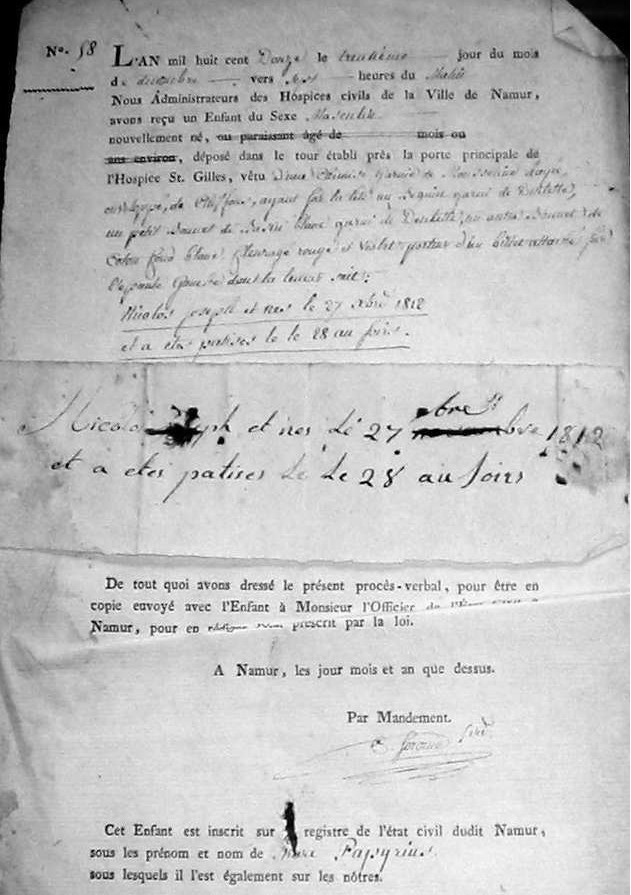 N°. 58
L'AN mil huit cent Douze le trentième jour du mois
de decembre vers heures du Matin
Nous Administrateurs des Hospices civils de la Ville de Namur,
avons reçu un Enfant du Sexe Masculin
nouvellement né, ou paraissant âgé de mois ou
ans environ, déposé dans le tour établi près la porte principale de
l'Hospice St. Gilles, vêtu d'une Chemise garnie de Mousseline
enveloppé de Chiffons, ayant sur la tête un Beguin garni de Dentelle,
un petit Bonnet de blanc garni de Dentelle, un autre Bonnet de
Coton fond blanc fleurage rouge et violet porteur d'un billet attaché sur
l'épaule Gauche dont la teneur suit:
Nicolas joseph et nes le 27 xbre 1812
et a etes patises le le 28 au soirs.
Nicola ph et nes Lé 27 bre 1812
et a etes patises Le Le 28 au soirs
De tout quoi avons dressé le présent procès-verbal, pour être en
copie envoyé avec l'Enfant à Monsieur l'Officier de l'État civil à
Namur, pour en prescrit par la loi.
A Namur, les jour mois et an que dessus.
Par Mandement.
Cet Enfant est inscrit sur registre de l'état civil dudit Namur,
sous les prénom et nom de Papyrius
sous lesquels il l'est également sur les nôtres.